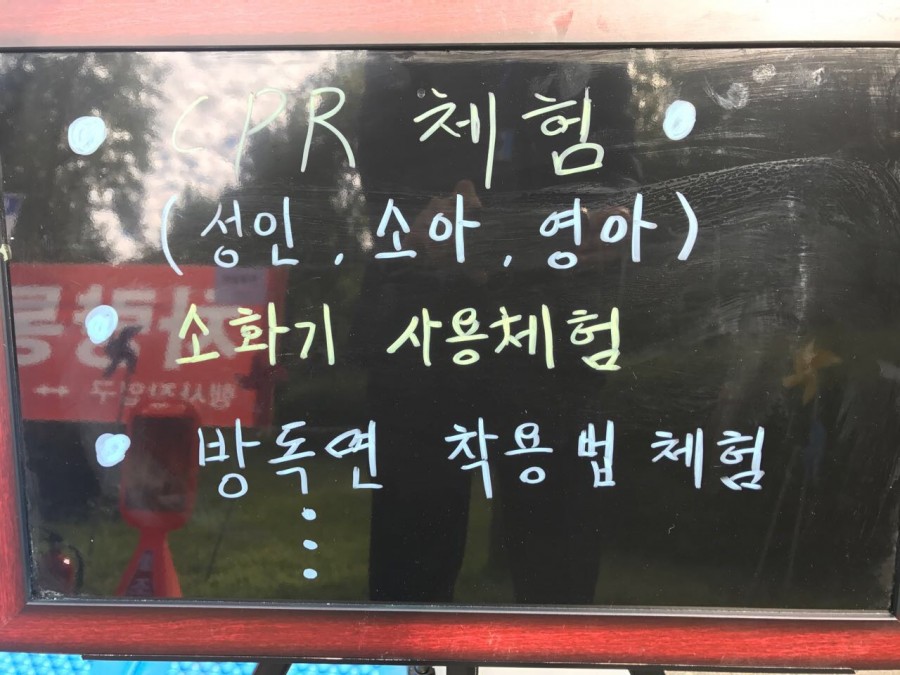 • CPR 체험 •
(성인, 소아, 영아)
• 소화기 사용체험
• 방독면 착용법 체험
⋮